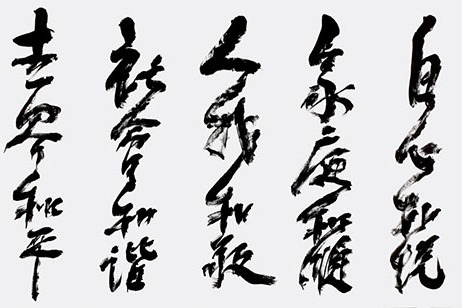 自心和悅
家庭和順
人我和敬
社會和諧
世界和平